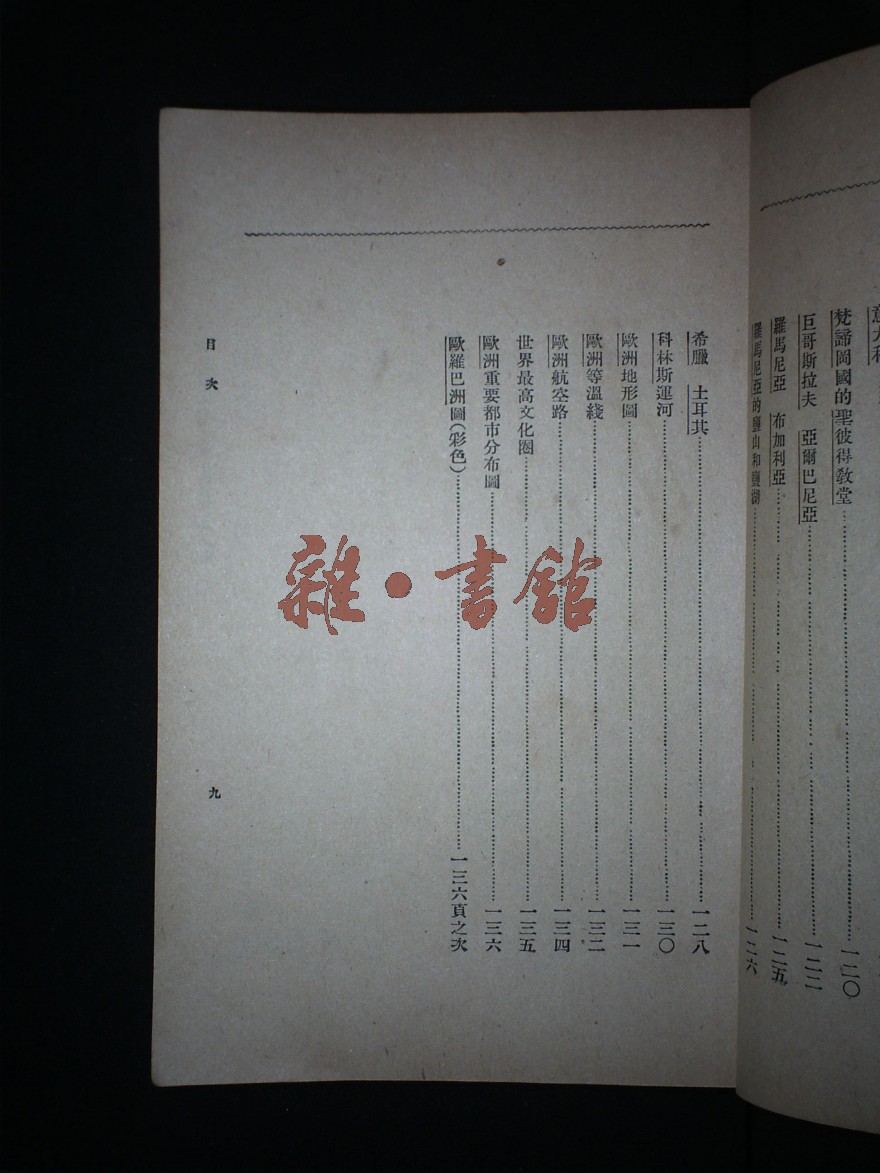 梵諦岡國的聖彼得敎堂……一二〇
巨哥斯拉夫　亞爾巴尼亞……一二二
羅馬尼亞　布加利亞……一二五
羅馬尼亞的鹽山和鹽湖……一二六
希臘　土耳其……一二八
科林斯運河……一三〇
歐洲地形圖……一三一
歐洲等溫綫……一三二
歐洲航空路……一三四
世界最高文化圈……一三五
歐洲重要都市分布圖……一三六
歐羅巴洲圖(彩色)……一三六頁之次
目次
九
雜·書館